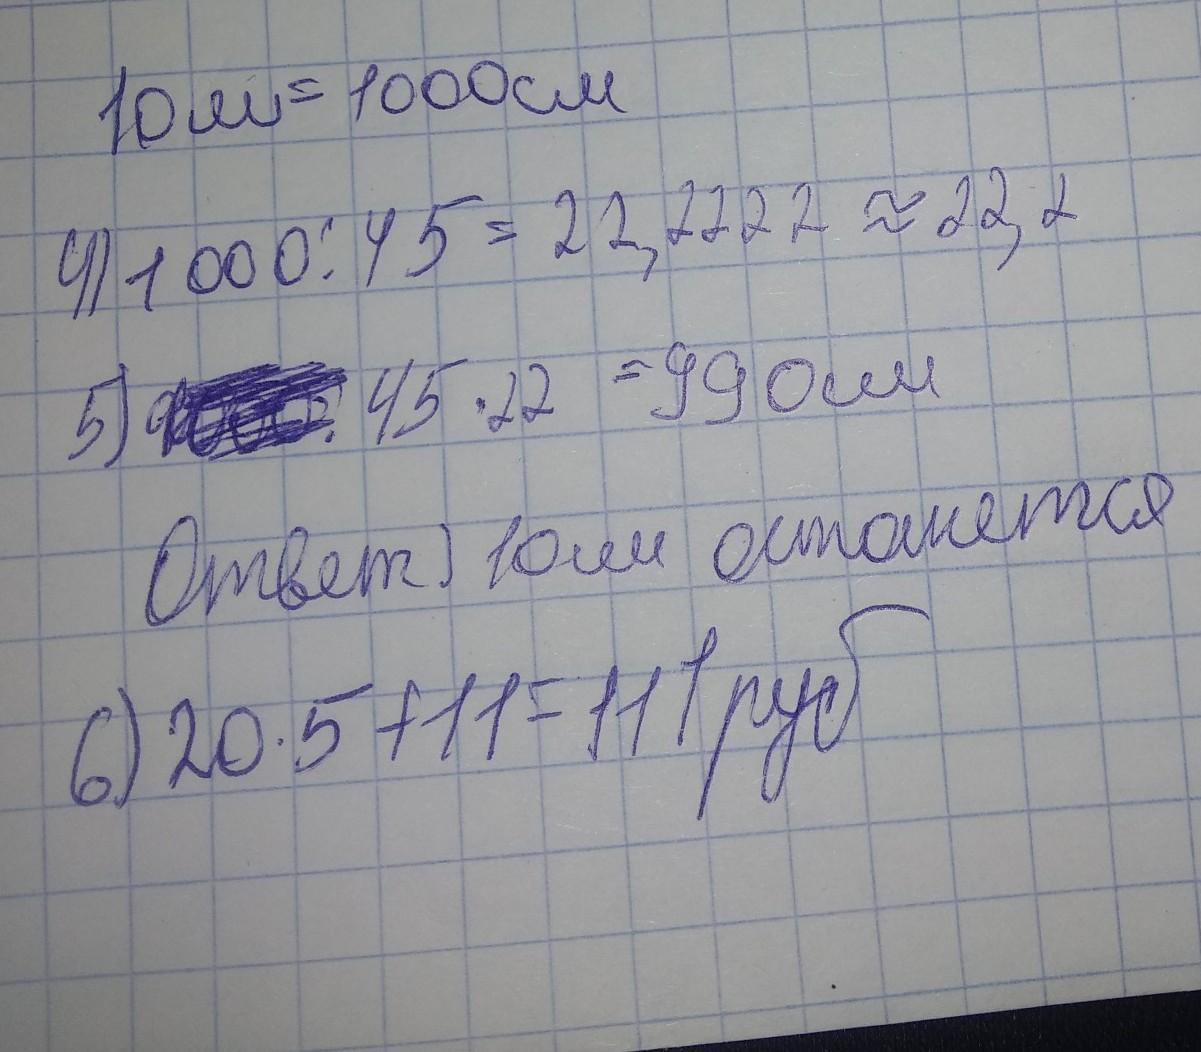 10 м = 1000 см
4) 1000 : 45 = 22,2222 ≈ 22,2
5) 45 · 22 = 990 см
Ответ: 10 см останется
6) 20 · 5 + 11 = 111 руб